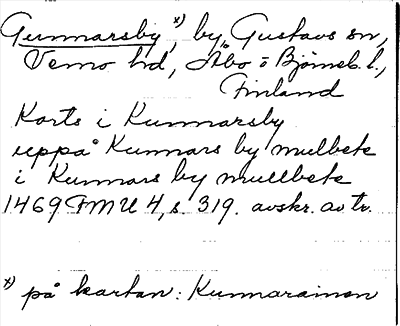 Gunnarsby, *) by, Gustavs sn,
Vemo hd, Åbo o Björneb. l.,
Finland
Korts i Kunnarsby
uppå Kunnars by mulbete
i Kunnars by mullbete
1469 FMU 4, s. 319. avskr. av tr.
*) på kartan: Kunnarainen